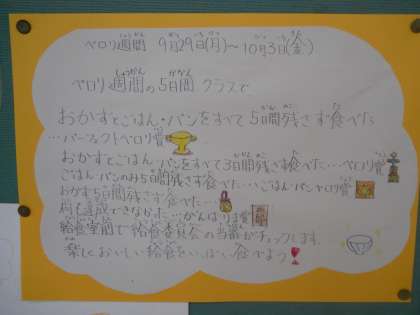 ペロリ週間 9月29日(月)〜10月3日(金)
ペロリ週間の5日間、クラスで
おかずとごはん・パンをすべて5日間残さず食べた
…パーフェクトペロリ賞
おかずとごはん・パンをすべて3日間残さず食べた…ペロリ賞
ごはん・パンのみ5日間残さず食べた…ごはん・パンペロリ賞
おかず5日間残さず食べた…
何も達成できなかった…がんばりま賞
給食室前で給食委員会の当番がチェックします。
楽しくおいしい給食をいっぱい食べよう